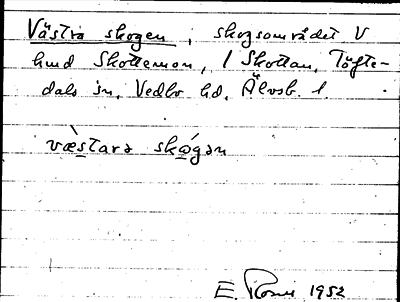 Västra skogen, skogsområdet V
hmd Skottemon, 1 Skottan, Töfte-
dals sn, Vedbo hd, Älvsb. l.
væstarə skógən
E. 1952